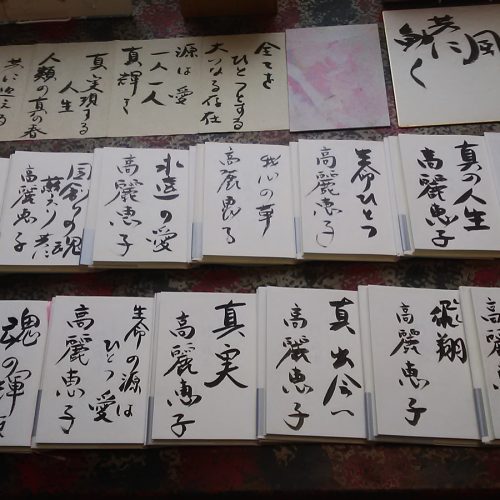 共に
全てを
ひとつとする
大いなる存在
源は愛
一人一人
真輝き
真実現する
人生
人類の真の春
共に迎える
真の人生
高麗恵子
生命ひとつ
高麗恵子
我心の華
高麗恵子
永遠の愛
高麗恵子
高麗恵子
飛翔
高麗恵子
真出会い
高麗恵子
真実
高麗恵子
生命の源は
ひとつ愛
高麗恵子
魂の輝